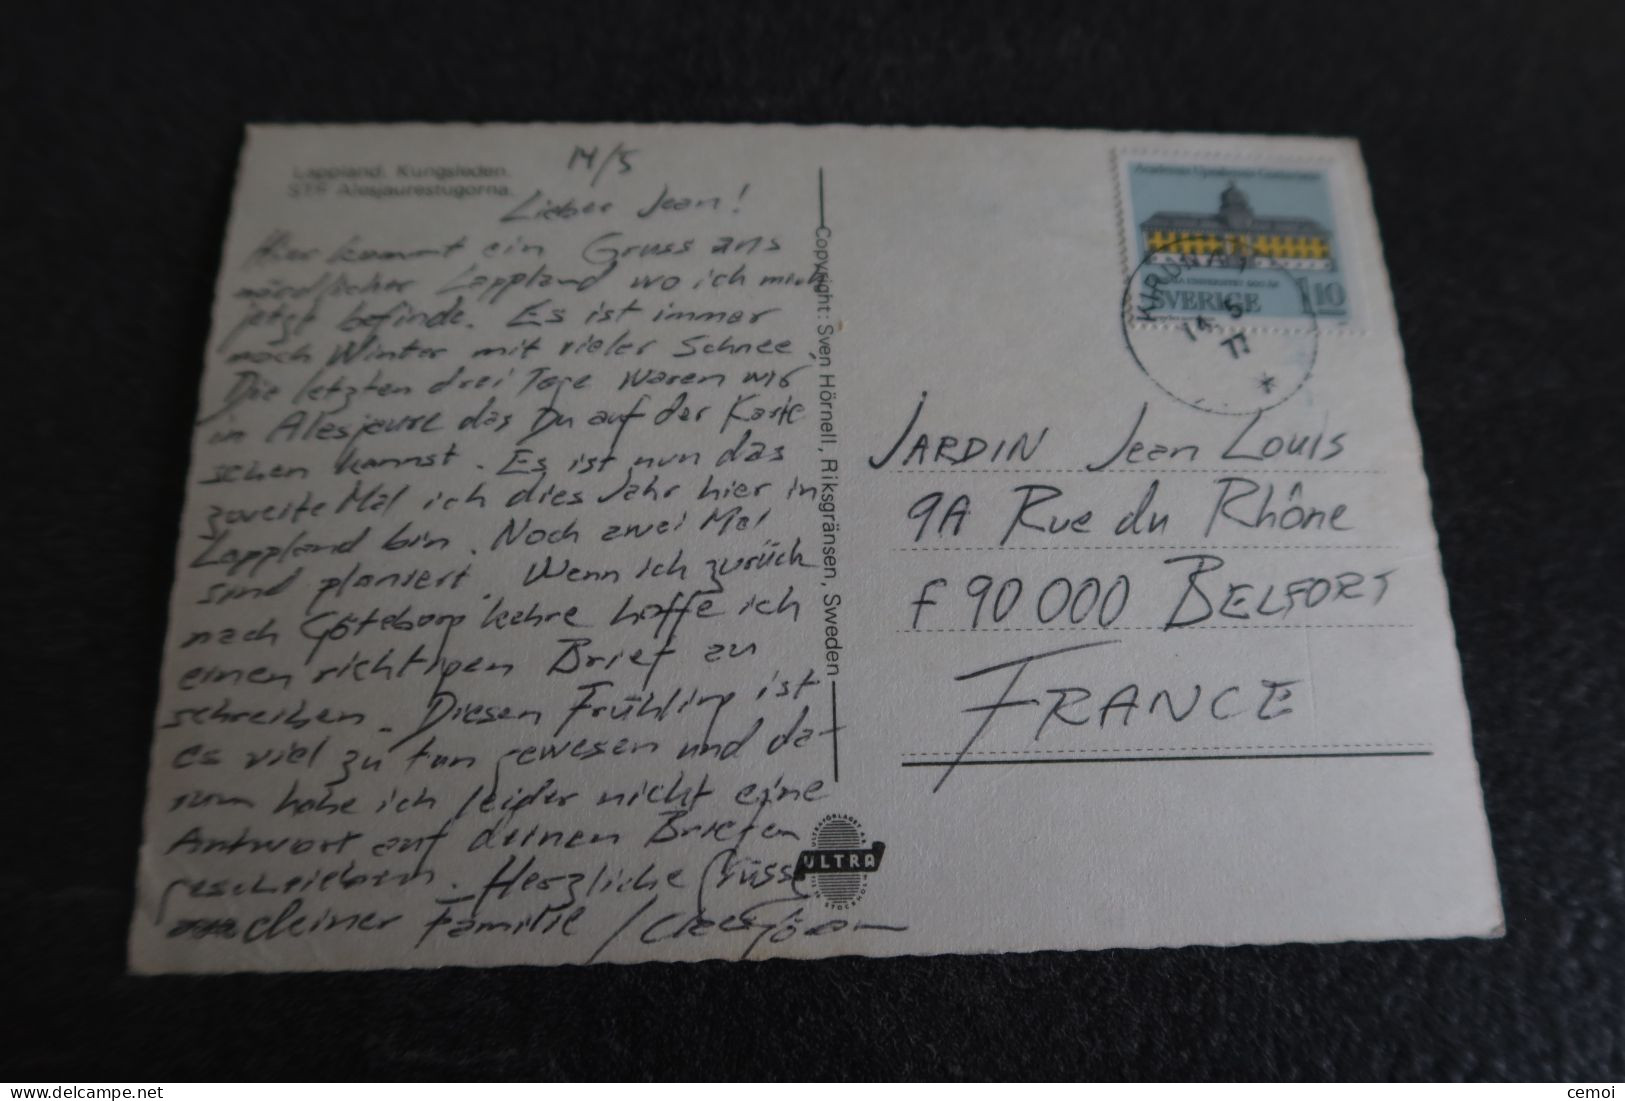 Lappland. Kungsleden.
STF Alesjaurestugorna.
14/5
Lieber Jean!
Hier kommt ein Gruss aus
nördlicher Lappland wo ich mich
jetzt befinde. Es ist immer
noch Winter mit vieler Schnee.
Die letzten drei Tage waren wir
in Alesjaure das Du auf der Karte
sehen kannst. Es ist nun das
zweite Mal ich dies Jahr hier in
Lappland bin. Noch zwei Mal
sind planiert. Wenn ich zurück
nach Göteborg kehre hoffe ich
einen richtigen Brief zu
schreiben. Diesen Frühling ist
es viel zu tun gewesen und da-
rum habe ich leider nicht eine
Antwort auf deinen Briefen
geschrieben. Herzliche Grüsse
deiner Familie / Claes Göran
Copyright: Sven Hörnell, Riksgränsen, Sweden
ULTRA
SVERIGE
110
KIRUNA
14. 5.
77
JARDIN Jean Louis
9A Rue du Rhône
F 90 000 BELFORT
FRANCE
cemoi